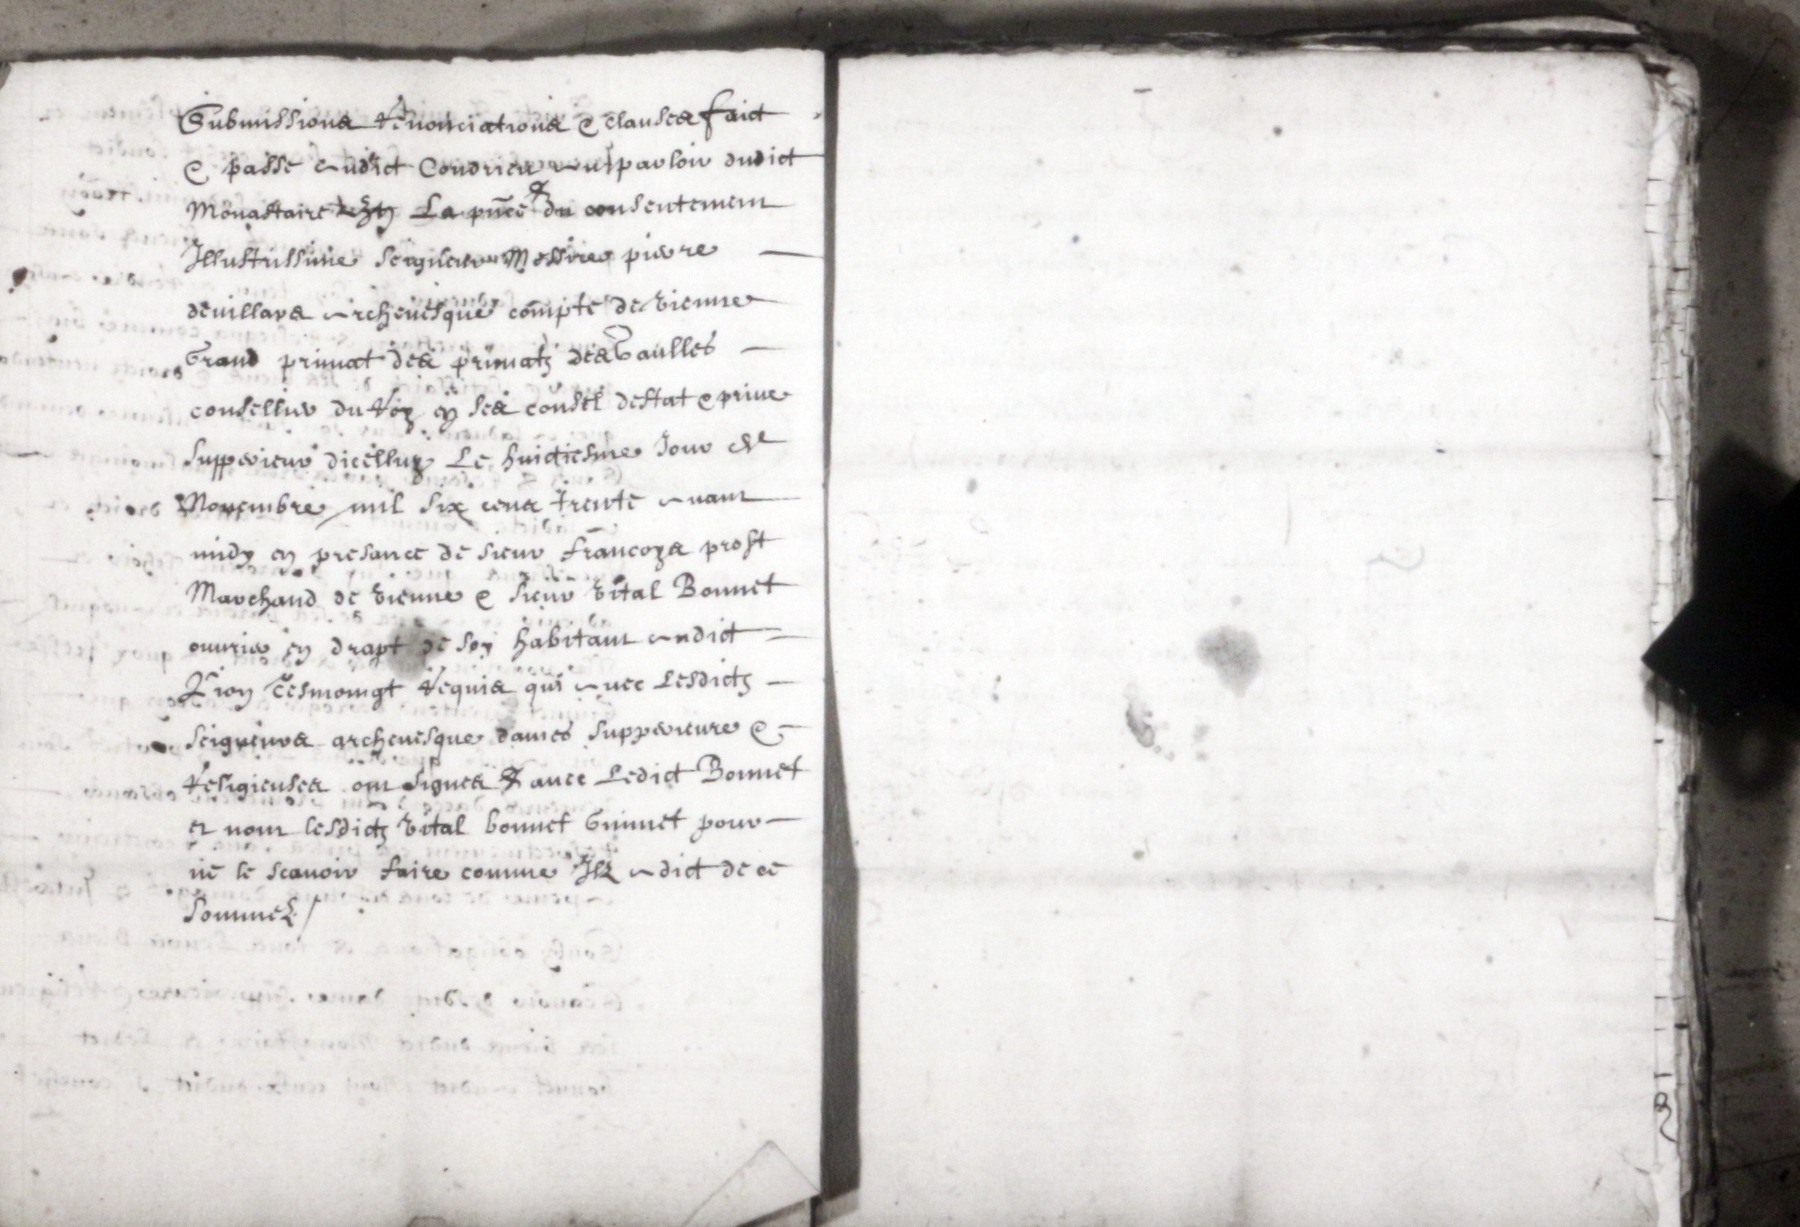 Submissions Renonciations & clauses faict
& passé audict Condrieu au parloir dudict
Monastaire La pnce du consentement
Illustrissime seigneur Messire pierre
devillars archevesque compte de vienne
Grand primat des primatz des Gaulles
conseillier du Roy en ses conseil destat & prive
supperieur dicelluy Le huictiesme Jour de
Novembre mil six cens trente avant
midy en presance de sieur francoys prost
Marchand de vienne & sieur vital Bonnet
ouvrier en drapt de soy habitant audict
Lion tesmoingt Requis qui avec Lesdictz
seigneurs archevesque dames supperieure &
Religieuses ont signes avec Ledict Bonnet
et nont lesdictz vital bonnet Guinet pour
ne le scavoir faire comme Ilz adict de ce
sommez